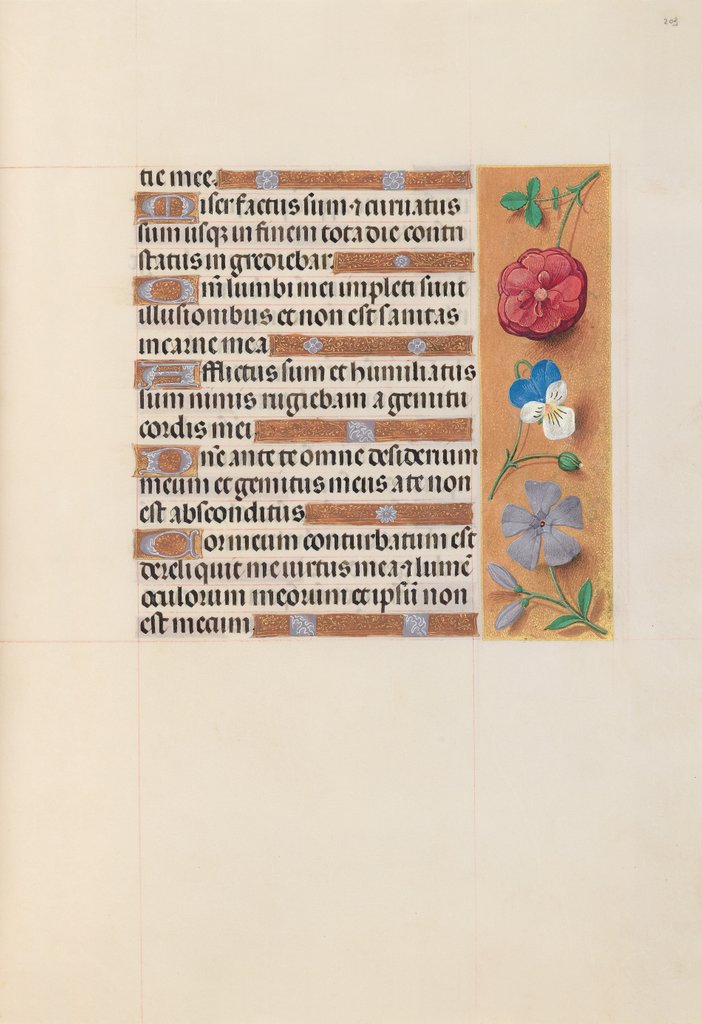 203
tie mee.
Miser factus sum ⁊ curuatus
sum usq; in finem tota die contri
status in grediebar.
Qm̄ lumbi mei impleti sunt
illusionibus et non est sanitas
in carne mea
Afflictus sum et humiliatus
sum nimis rugiebam a gemitu
cordis mei.
Dn̄e ante te omne desiderium
meum et gemitus meus a te non
est absconditus
Cor meum conturbatum est
dereliquit me uirtus mea ⁊ lumē
oculorum meorum et ipsū non
est mecum.